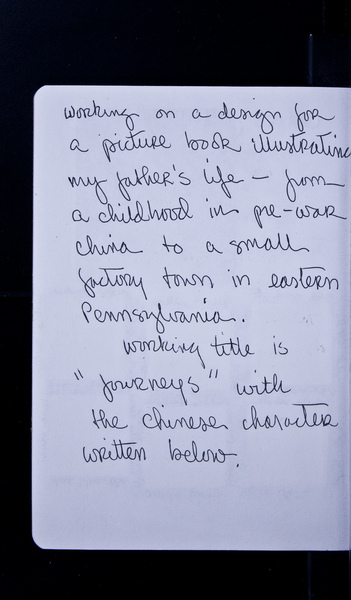 working on a design for
a picture book illustrating
my father's life - from
a childhood in pre-war
china to a small
factory town in eastern
Pennsylvania.
working title is
"Journeys" with
the chinese character
written below.